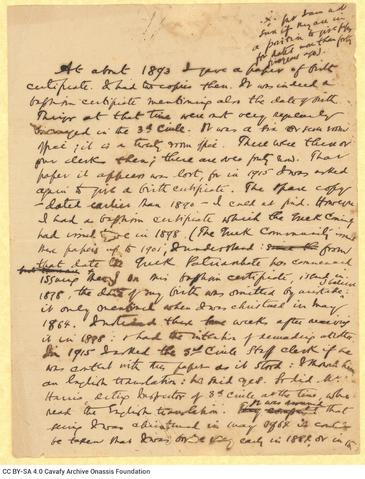 but I am not
sure if
a position to give
for
At about 1893 I gave a paper of birth
certificate. I had two copies then. It was indeed a
baptism certificate mentioning also the date of birth.
Things at that time were not very regularly
managed in the 3d Circle. It was a six or seven room
office; it is a twenty room office. There were three or
four clerks then; there are over forty now. That
paper it appears was lost, for in 1915 I was asked
again to give a birth certificate. The spare copy
- dated earlier than 1890 - I could not find. However
I had a baptism certificate which the Greek Comty
had issued to me in 1898. (The Greek Community issued
these papers up to 1901, I understand: from
that date the Greek Patriarchate has commenced
issuing them) In this baptism certificate, issued in
1898, the date of my birth was omitted by mistake:
it only mentioned when I was christened in May
1864. I noticed these weeks after receiving
it in 1898: I had the intention of remedying it later.
In 1915 I asked the 3d Circle Staff clerk if he
was content with this paper as it stood: I showed him
an English translation: he said yes. So did Mr
Harris, Acting Inspector of 3d Circle at the time, who
read the English translation. that
seeing I was christened in May 1864 it could
be taken that I was born early in 1864 or in the
CC BY-SA 4.0 Cavafy Archive Onassis Foundation